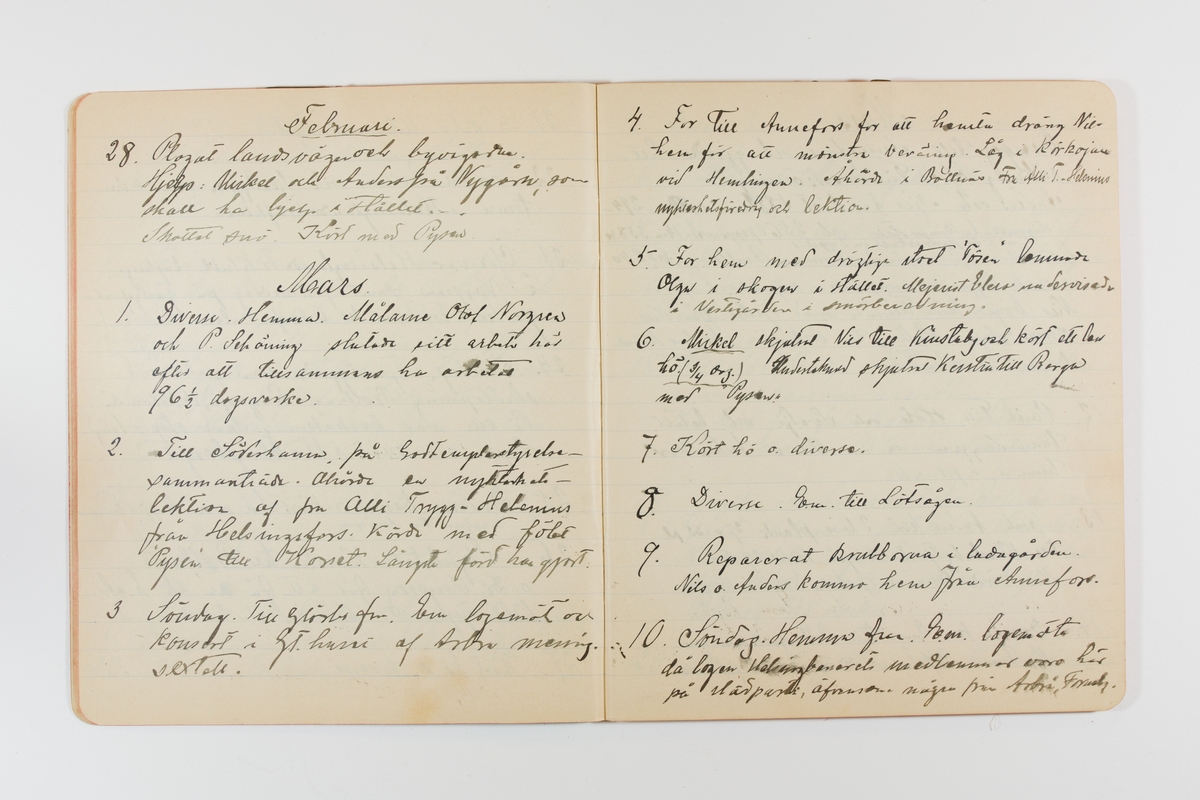 Februari.
28. Plogat landsvägen och byvägarna.
Hjelp: Mickel och Anders från Nygårn, som
skall ha hjelp i Stället.
Skottat snö. Kört med Pysen.
Mars.
1. Diverse. Hemma. Målarne Olof Norgren
och P. Schöning slutade sitt arbete här
efter att tillsammans ha arbetat
96 1/2 dagsverke.
2. Till Söderhamn, på Godtemplarstyrelse-
sammanträde. Åhörde en nykterhets-
lektion af fru Alli Trygg-Helenius
från Helsingfors. Körde med fölet
Pysen till Korset. Längsta färd han gjort.
3 Söndag. Till Glösbo fm. Em logemöt och
konsert i G.T. huset af Arbrå mässing-
sextett.
4. For till Annefors för att hemta dräng Nil-
hem för att mönstra beväring. Låg i körkojan
vid Hemlingen. Åhörde i Bollnäs Fru Alli T-Helenius
nykterhetsföredrag och lektion.
5. For hem med drägtiga stoet "Tösen" lemnade
Olga i skogen i Stället. Mejerist Elers undervisade
i Vestigården i smörberedning.
6. Mickel skjutsat Nils till Kinstaby och kört ett lass
hö. (3/4 Arg.) Undertecknad skjutsat Kerstin till Berga
med Pysen.
7. Kört hö o. diverse.
8. Diverse. Em. till Lötsågen.
9. Reparerat krubborna i ladugården.
Nils o. Anders kommo hem från Annefors.
10. Söndag. Hemma fm. Em. logemöte
då logen Helsingbaneréts medlemmar voro här
på slädparti, äfvensom några från Arbrå, Forneby.